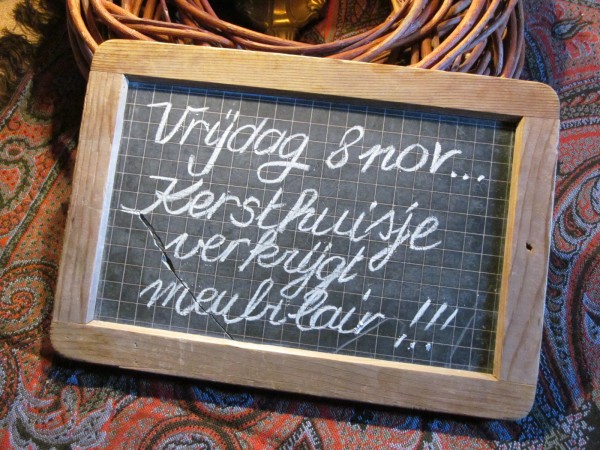 Vrijdag 8 nov...
Kersthuisje
verkrijgt
meubilair !!!